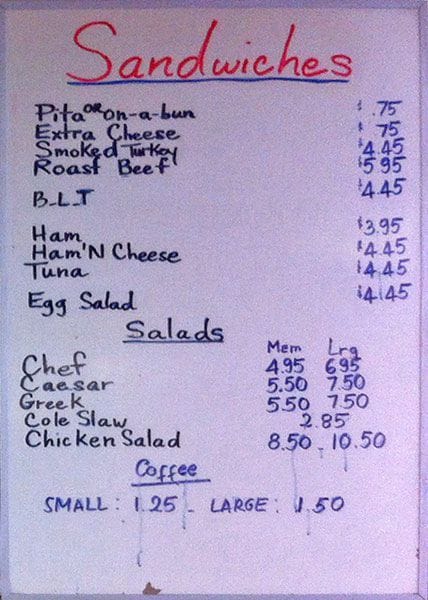 Sandwiches
Pita OR on-a-bun $ .75
Extra Cheese $ 75
Smoked Turkey $4.45
Roast Beef $5 95
B-L-T $4.45
Ham $3.95
Ham'N Cheese $4.45
Tuna $4.45
Egg Salad $4.45
Salads
Mem Lrg
Chef 4.95 6.95
Caesar 5.50 7.50
Greek 5.50 7.50
Cole Slaw 2.85
Chicken Salad 8.50 - 10.50
Coffee
SMALL: 1.25 - LARGE: 1.50